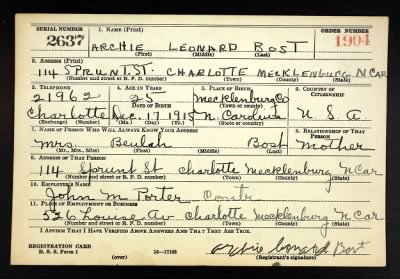 SERIAL NUMBER 1. NAME (Print) ORDER NUMBER
2637 ARCHIE LEONARD BOST 1904
(First) (Middle) (Last)
2. ADDRESS (Print)
114 SPRUNT. ST. CHARLOTTE MECKLENBURG N CAR
(Number and street or R. F. D. number) (Town) (County) (State)
3. TELEPHONE 4. AGE IN YEARS 5. PLACE OF BIRTH 6. COUNTRY OF CITIZENSHIP
21962 25 Mecklenburg Co
DATE OF BIRTH (Town or county)
Charlotte Dec. 17 1915 N. Carolina U. S. A.
(Exchange) (Number) (Mo.) (Day) (Yr.) (State or country)
7. NAME OF PERSON WHO WILL ALWAYS KNOW YOUR ADDRESS 8. RELATIONSHIP OF THAT PERSON
Mrs Beulah Bost Mother
(Mr., Mrs., Miss) (First) (Middle) (Last)
9. ADDRESS OF THAT PERSON
114 Sprunt St Charlotte Mecklenburg N Car
(Number and street or R. F. D. number) (Town) (County) (State)
10. EMPLOYER'S NAME
John M Porter Contr
11. PLACE OF EMPLOYMENT OR BUSINESS
536 Louise Av Charlotte Mecklenburg N Car
(Number and street or R. F. D. number) (Town) (County) (State)
I AFFIRM THAT I HAVE VERIFIED ABOVE ANSWERS AND THAT THEY ARE TRUE.
REGISTRATION CARD
D. S. S. Form 1 16—17105 Archie Leonard Bost
(over) (Registrant's signature)